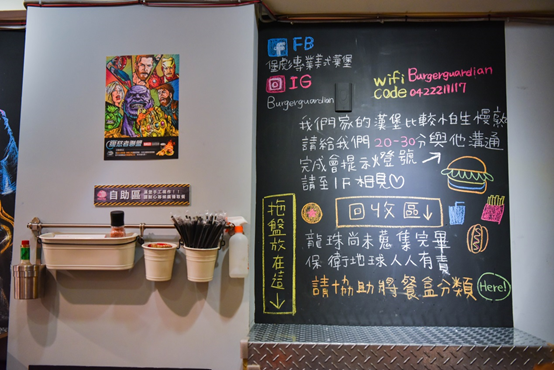 FB
堡彪專業美式漢堡
IG
Burgerguardian
wifi Burgerguardian
code 0422211117
我們家的漢堡比較怕生慢熟
請給我們 20-30分與他溝通
完成會提示燈號
請至1F相見♡
回收區↓
拖盤放在這↓
龍珠尚未蒐集完畢
保衛地球人人有責
請+協助將餐盒分類 Here!
自助區